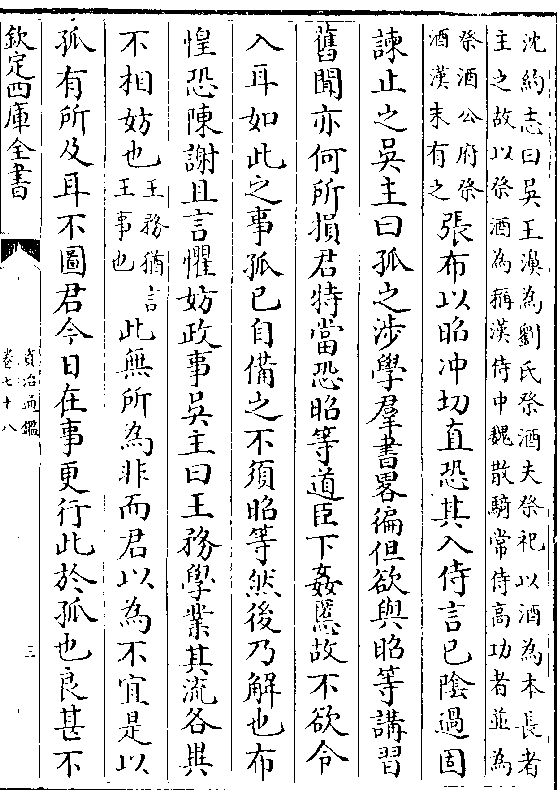 沈約志曰吳王濞為劉氏祭酒夫祭祀以酒為本長者
主之故以祭酒為稱漢侍中魏散騎常侍高功者並為
祭酒公府祭
酒漢末有之
張布以昭冲切直恐其入侍言己隂過固
諫止之吳主曰孤之涉學羣書畧徧但欲與昭等講習
舊聞亦何所損君特當恐昭等道臣下姦慝故不欲令
入耳如此之事孤已自備之不須昭等然後乃解也布
惶恐陳謝且言懼妨政事吳主曰王務學業其流各異
不相妨也
王務猶言
王事也
此無所為非而君以為不宜是以
孤有所及耳不圖君今日在事更行此於孤也良甚不
欽定四庫全書
資治通鑑
卷七十八
三